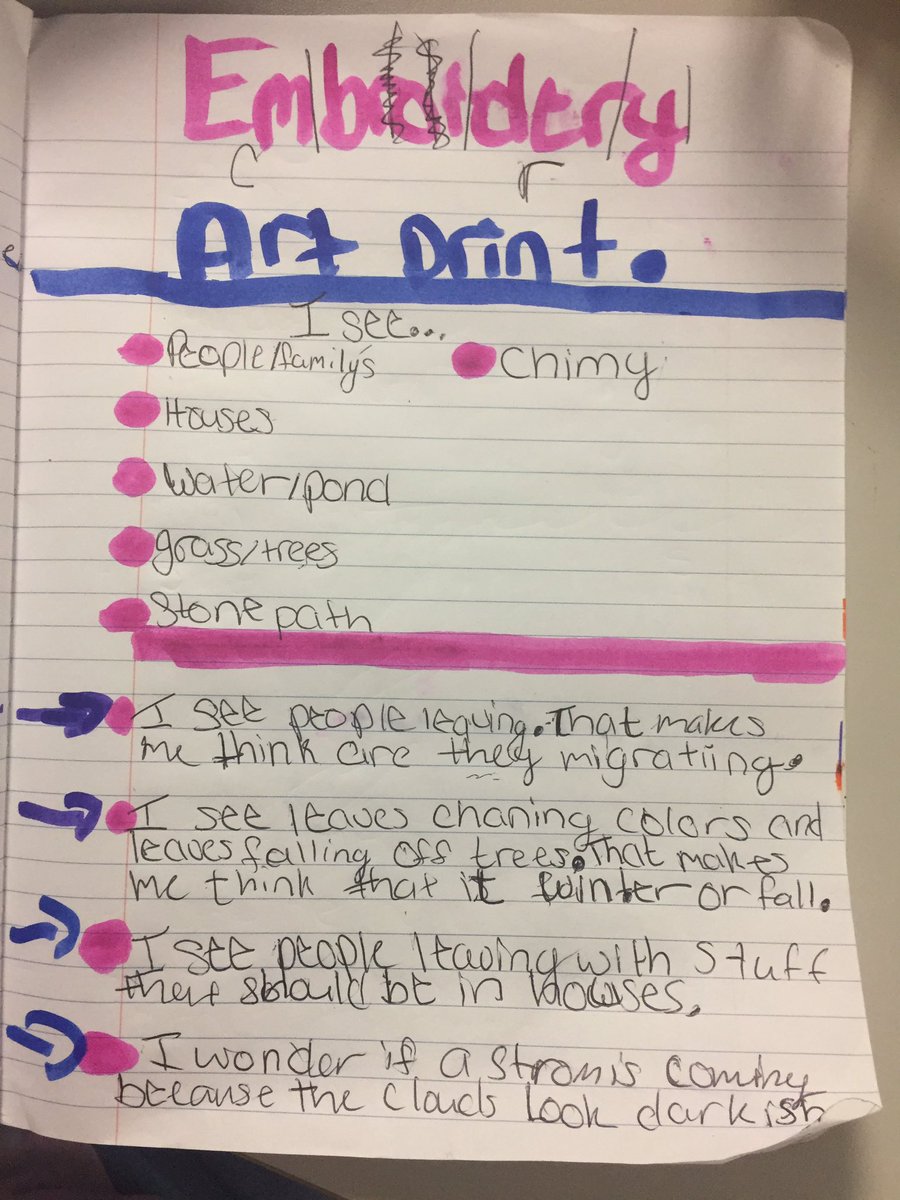 Embroidery
c r
Art Print.
I see...
People/family's
Chimy
Houses
Water/pond
grass/trees
Stone path
I see people leaving. That makes
me think are they migratiing.
I see leaves chaning colors and
leaves falling off trees. That makes
me think that it winter or fall.
I see people leaving with stuff
that should be in houses.
I wonder if a strom is coming
because the clouds look darkish